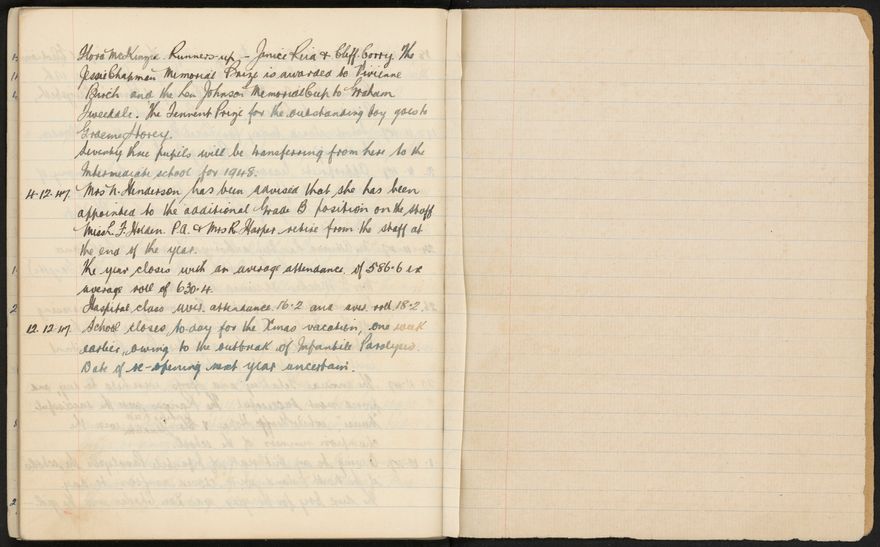 Flora McKenzie. Runners-up - Janice Ruia & Cliff. Corry. The
Jessie Chapman Memorial Prize is awarded to Vivienne
Birch and the Len Johnson Memorial Cup to Graham
Tweedale. The Tennent Prize for the outstanding boy goes to
Graeme Storey.
Seventy three pupils will be transferring from here to the
Intermediate school for 1948.
4.12.47 Mrs N. Henderson has been advised that she has been
appointed to the additional Grade B position on the staff
Miss L. F. Holden P.A. & Mrs R. Harper retire from the staff at
the end of the year.
The year closes with an average attendance of 586.6 ex
average roll of 630.4.
Hospital class aver. attendance 16.2 and aver. roll 18.2.
12.12.47 School closes to-day for the Xmas vacation, one week
earlier, owing to the outbreak of Infantile Paralysis.
Date of re-opening next year uncertain.